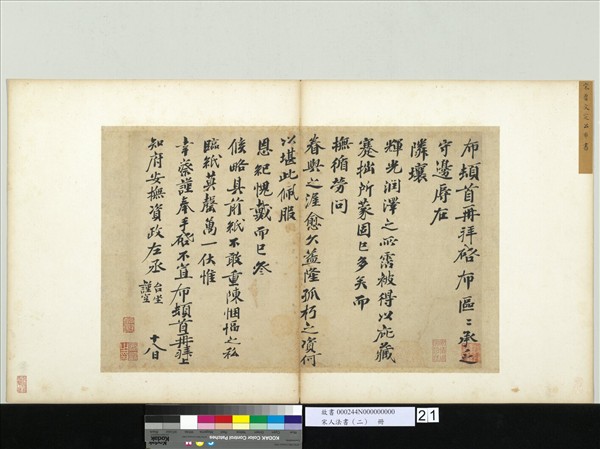 布頓首再拜啓布區區承乏
守邊辱在
隣壤
輝光潤澤之所霑被得以庇藏
蹇拙所蒙固已多矣而
撫循勞問
眷與之渥愈久益隆孤朽之資何
以堪此佩服
恩紀愧戴而已參
候略具前紙不敢重陳悃愊之私
臨紙莫罄萬一伏惟
幸察謹奉手啓不宣布頓首再拜上
知府安撫資政左丞 台坐 謹空
十八日
故書 000244N000000000
宋人法書(二) 冊
21
Kodak
KODAK Color Control Patches